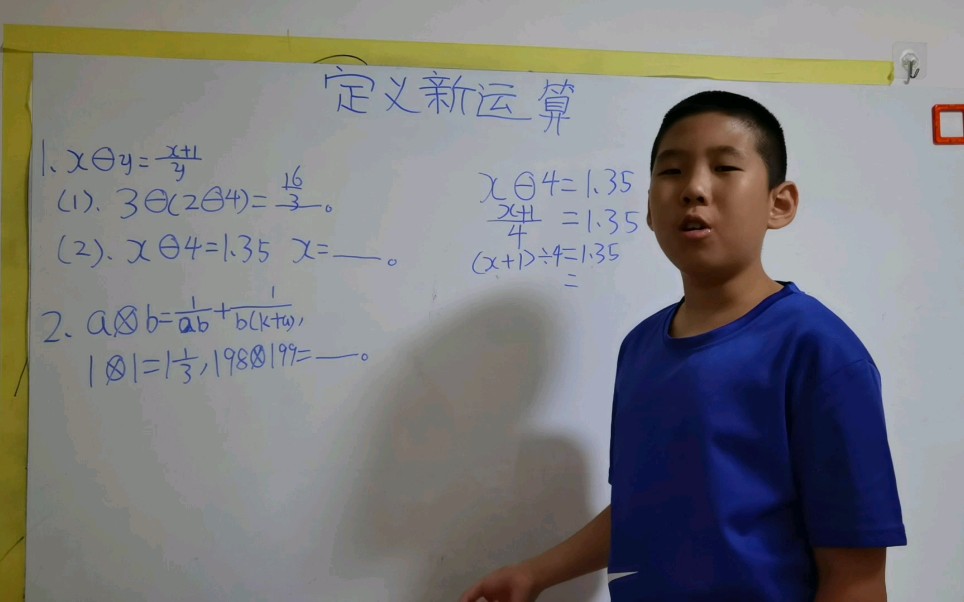 定义新运算
1、x⊖y=\frac{x+1}{y}
(1)、3⊖(2⊖4)=\frac{16}{3}。
(2)、x⊖4=1.35 x=___。
2、a⊗b=\frac{1}{ab}+\frac{1}{b(k+a)},
1⊗1=1\frac{1}{3},198⊗199=___。
x⊖4=1.35
\frac{x+1}{4}=1.35
(x+1)÷4=1.35
=